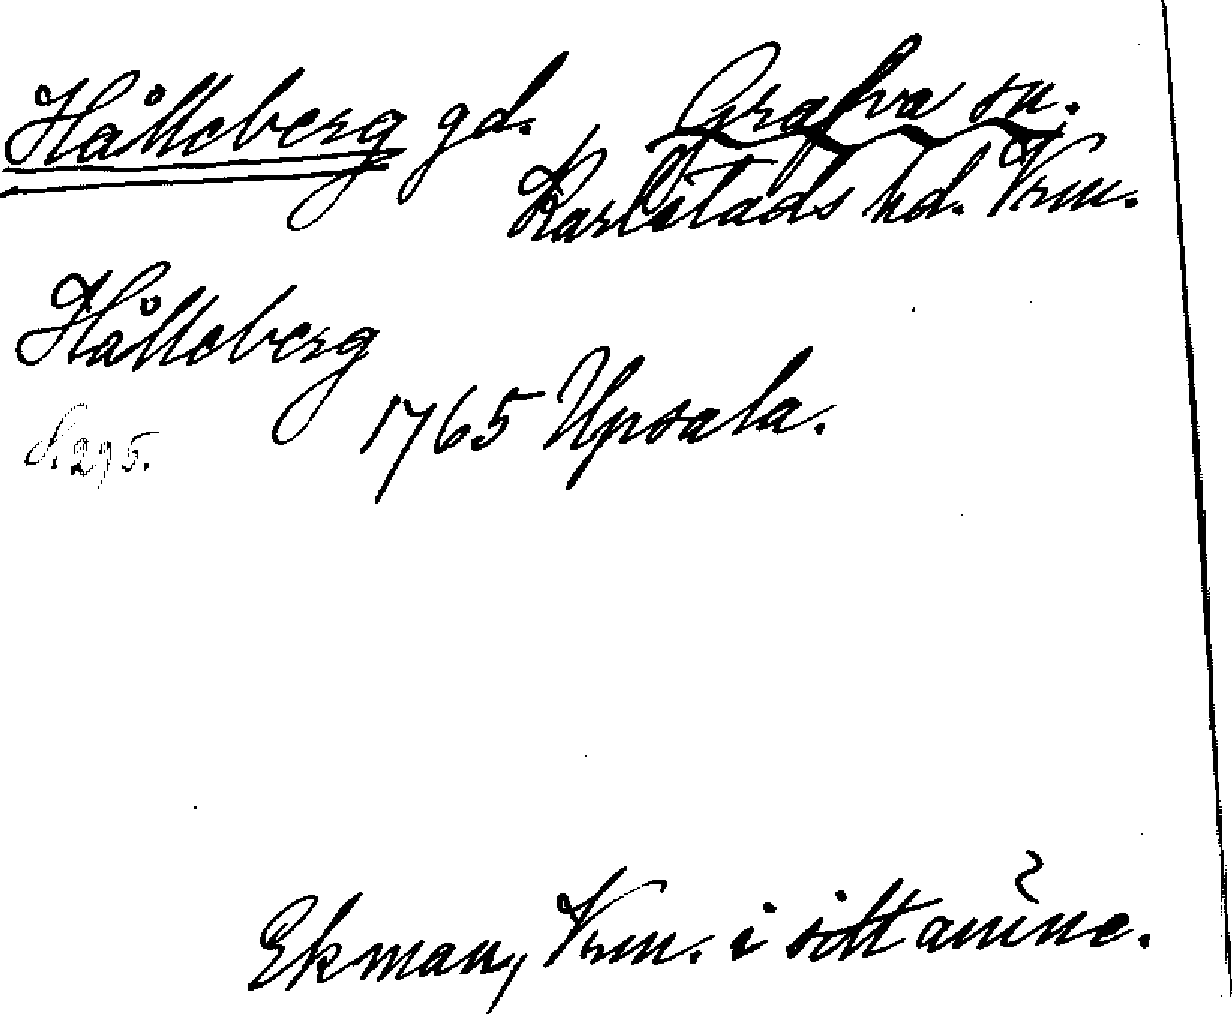 Hålleberg gd. Grafva sn.
Karlstads hd. Vrm.
Hålleberg
1765 Upsala.
S. 295.
Ekman, Vrm. i sitt ämne.